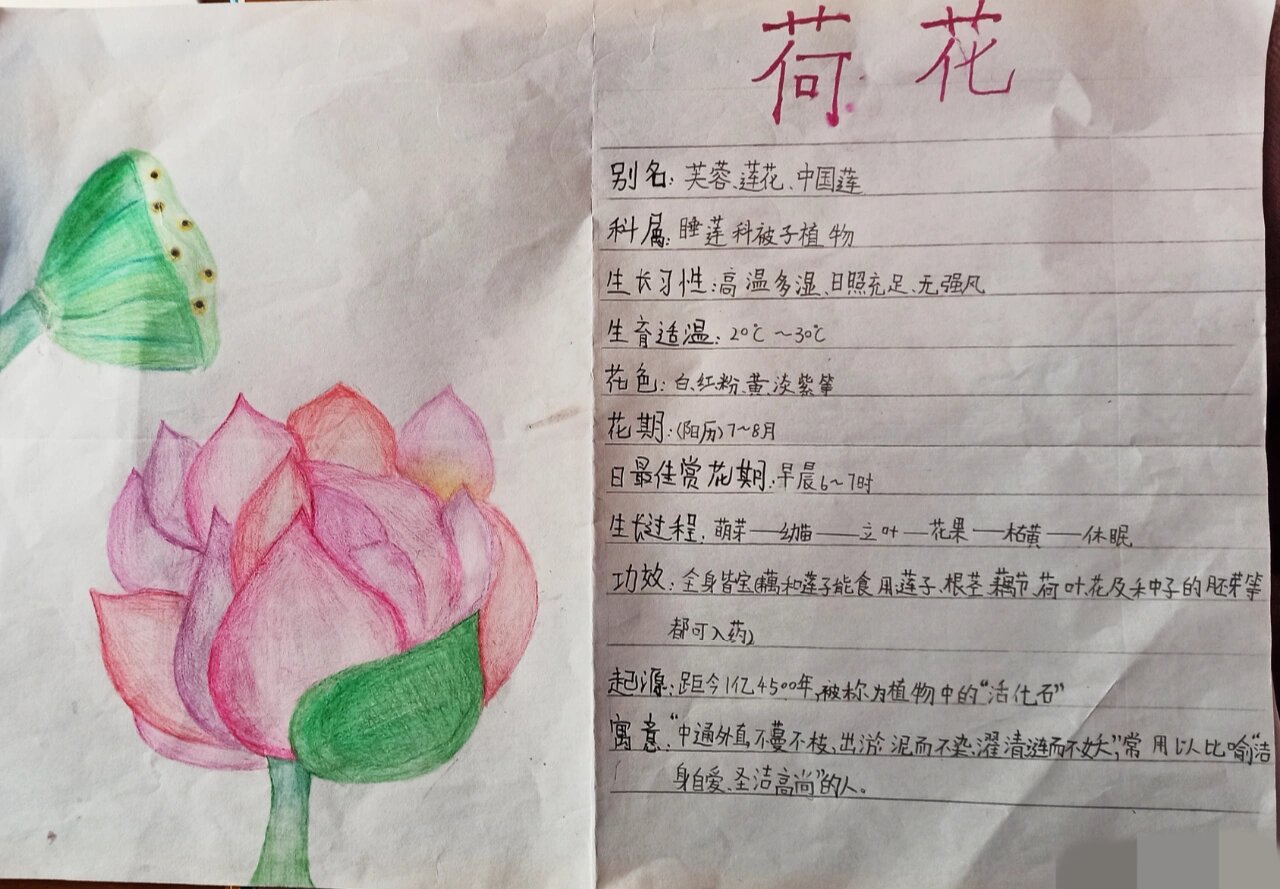 荷花
别名：芙蓉、莲花、中国莲
科属：睡莲科被子植物
生长习性：高温多湿、日照充足、无强风
生育适温：20℃～30℃
花色：白、红粉、黄、淡紫等
花期：(阳历)7～8月
日最佳赏花期：早晨6～7时
生长过程：萌芽——幼苗——立叶——花果——枯黄——休眠
功效：全身皆宝(藕和莲子能食用,莲子、根茎、藕节、荷叶、花及种子的胚芽等
都可入药)
起源：距今1亿4500年,被称为植物中的“活化石”
寓意：“中通外直,不蔓不枝,出淤泥而不染,濯清涟而不妖”,常用以人比喻“洁
身自爱、圣洁高尚”的人。